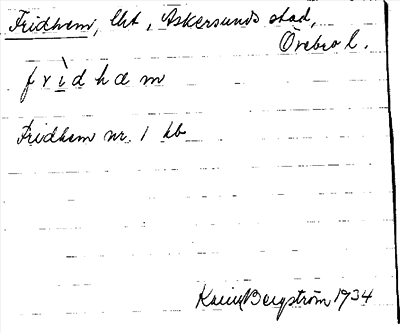 Fridhem, lht, Askersunds stad,
Örebro l.
frìdhæm
Fridhem nr 1 kb
Karin Bergström 1934